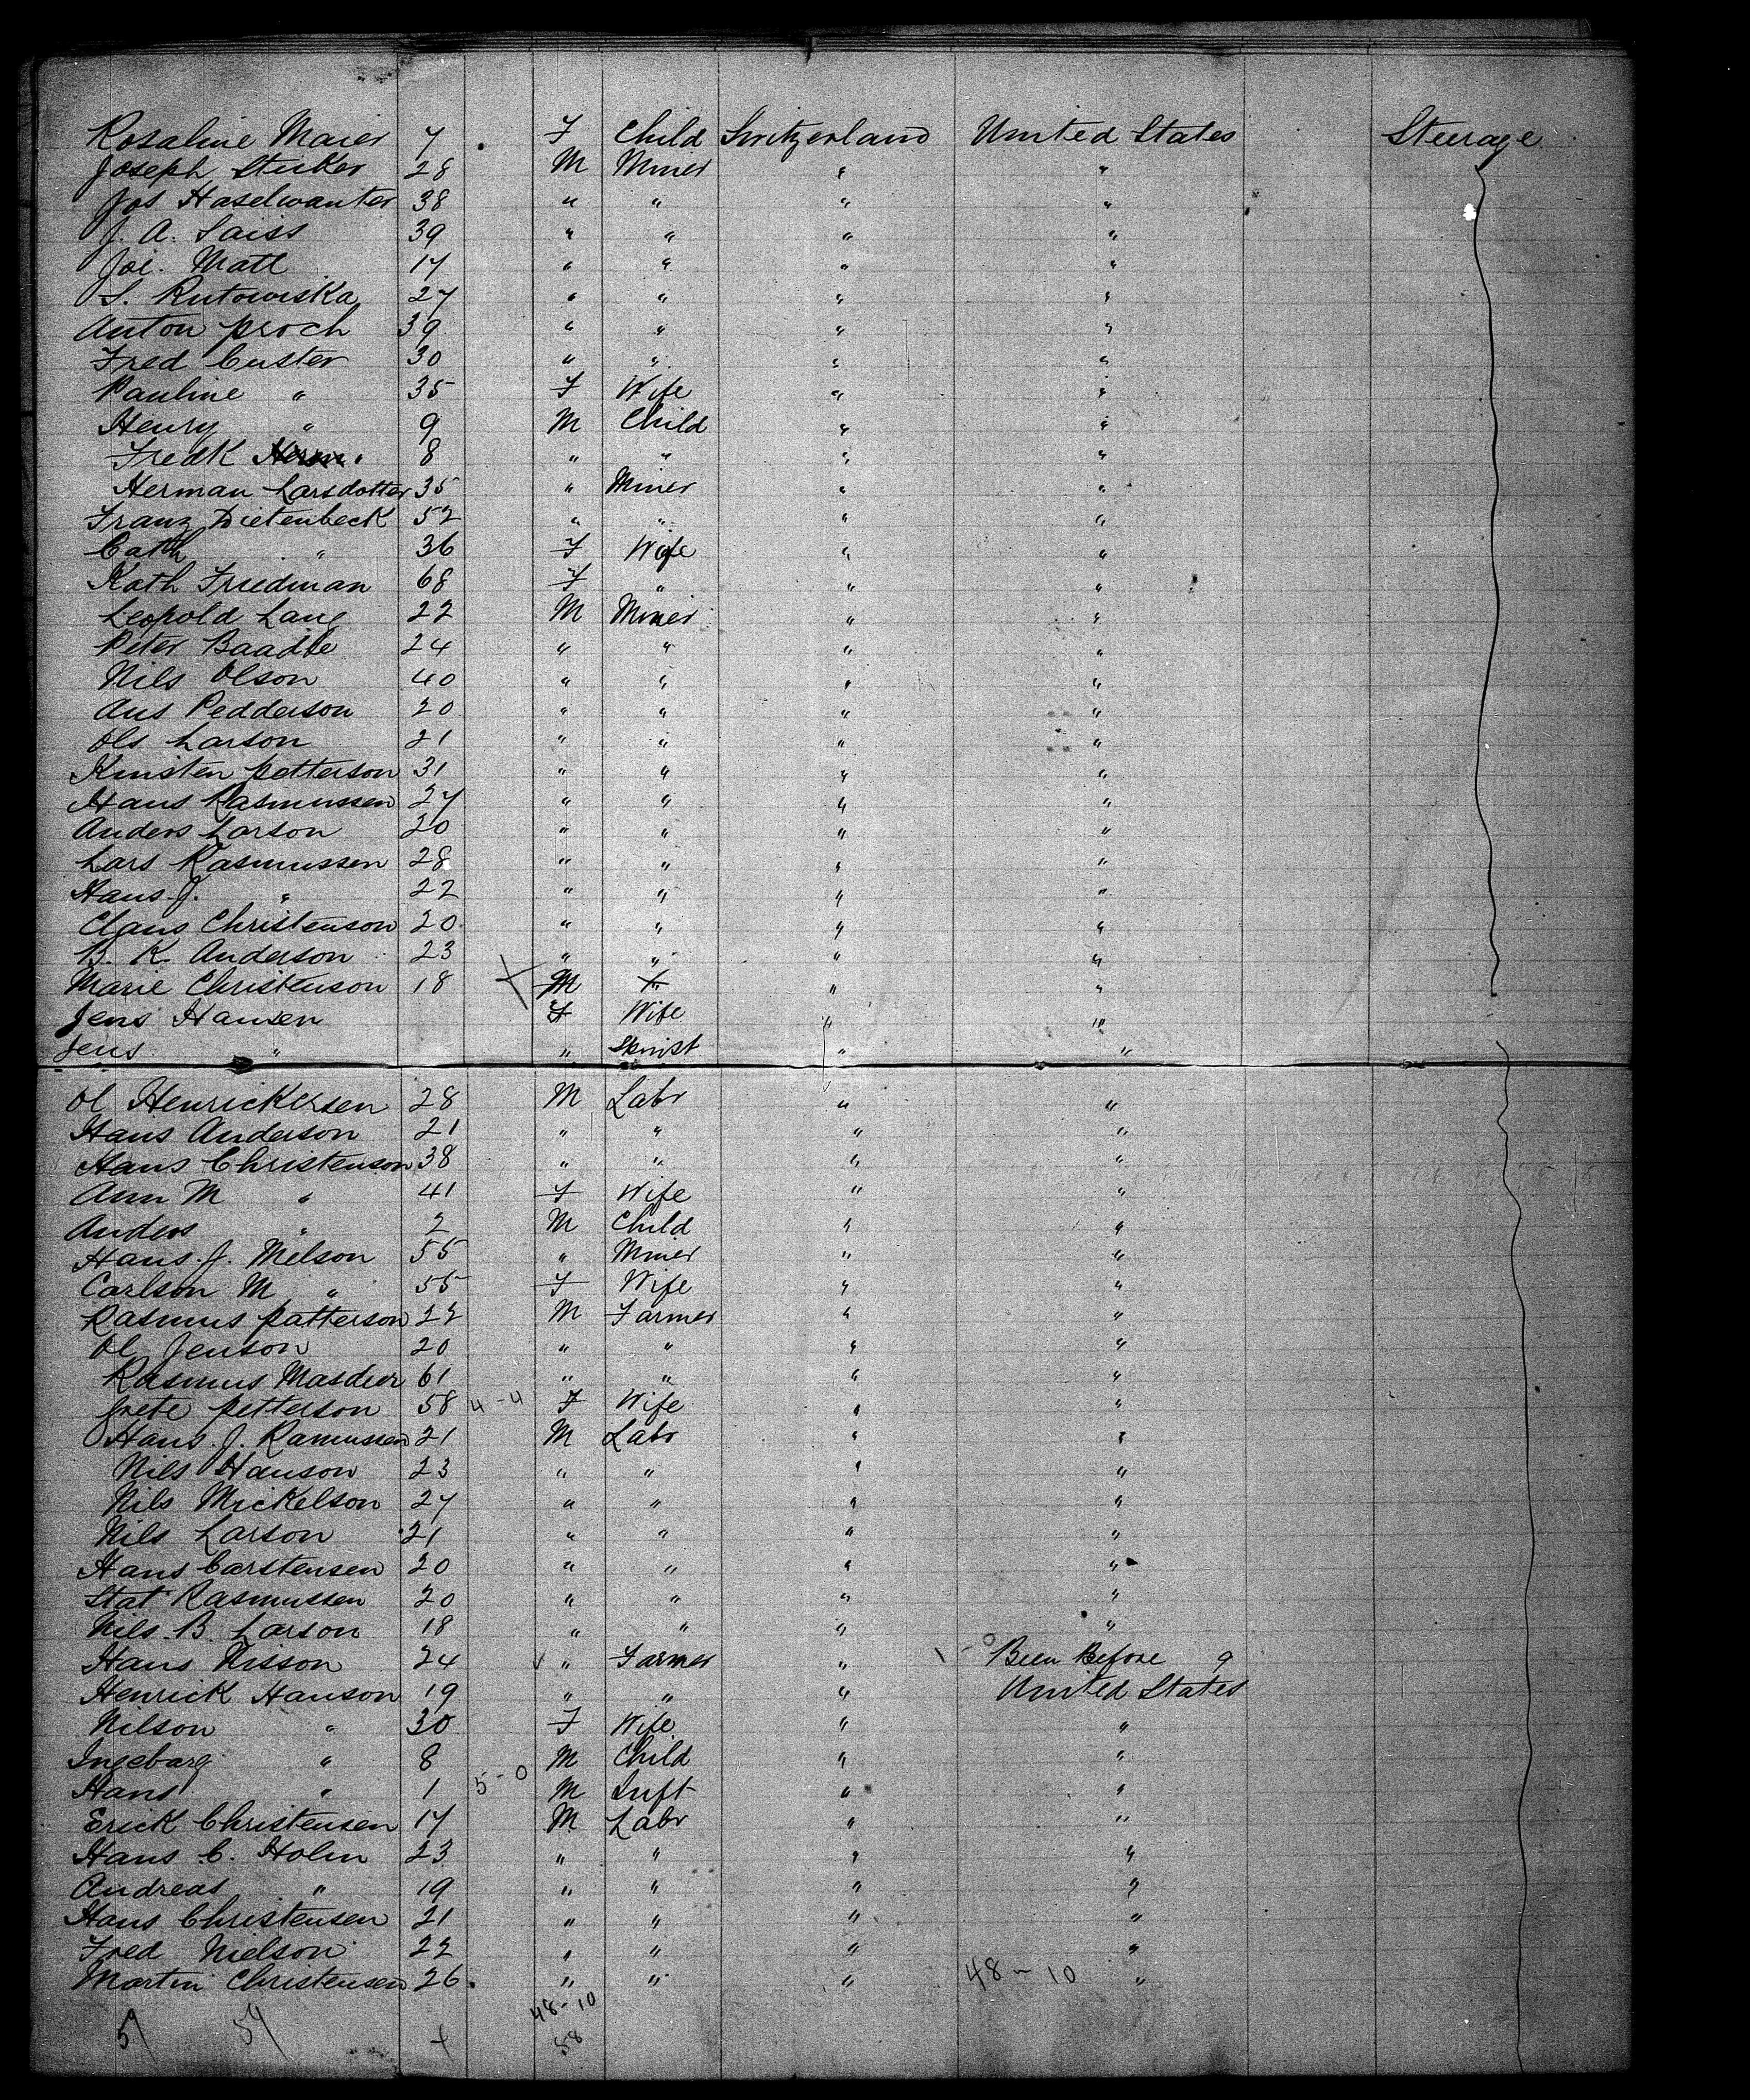 Rosaline Maier 7 F Child Switzerland United States Steerage
Joseph Stucker 28 M Miner " "
Jos Haselwanter 38 " " " "
J. A. Saiss 39 " " " "
Joe. Matt 17 " " " "
S. Rutowiska 27 " " " "
Anton Proch 39 " " " "
Fred Custer 30 " " " "
Pauline " 35 F Wife " "
Henry " 9 M Child " "
Fredk " 8 " " " "
Herman Larsdotter 35 " Miner " "
Franz Dietenbeck 52 " " " "
Cath " 36 F Wife " "
Kath Friedman 68 F " " "
Leopold Lang 22 M Miner " "
Peter Baadle 24 " " " "
Nils Olson 40 " " " "
Aus Pedderson 20 " " " "
Ols Larson 21 " " " "
Kinsten Petterson 31 " " " "
Hans Rasmussen 27 " " " "
Anders Larson 20 " " " "
Lars Rasmussen 28 " " " "
Hans J. " 22 " " " "
Claus Christenson 20 " " " "
B. K. Anderson 23 " " " "
Marie Christenson 18 X M " " "
Jens Hansen F Wife " "
Jens " " " "
Ol Henrickersen 28 M Labr " "
Hans Anderson 21 " " " "
Hans Christenson 38 " " " "
Ann M " 41 F Wife " "
Anders " 2 M Child " "
Hans J. Melson 55 " Miner " "
Carlson M " 55 F Wife " "
Rasmus Patterson 22 M Farmer " "
Ol Jenson 20 " " " "
Rasmus Masdeer 61 " " " "
Grete Petterson 58 4-4 F Wife " "
Hans J. Ramussen 21 M Labr " "
Nils Hanson 23 " " " "
Nils Mickelson 27 " " " "
Nils Larson 21 " " " "
Hans Carstensen 20 " " " "
Stat Rasmussen 20 " " " "
Nils B. Larson 18 " " " "
Hans Nisson 24 " Farmer " 1-0 Been Before 9
Henrick Hanson 19 " " " United States
Nilson " 30 F Wife " "
Ingebarg " 8 M Child " "
Hans " 1 5-0 M Inft " "
Erick Christensen 17 M Labr " "
Hans C. Holm 23 " " " "
Andreas " 19 " " " "
Hans Christensen 21 " " " "
Fred Nielson 22 " " " "
Martin Christensen 26 " " " 48-10 "
48-10
59 59 + 58